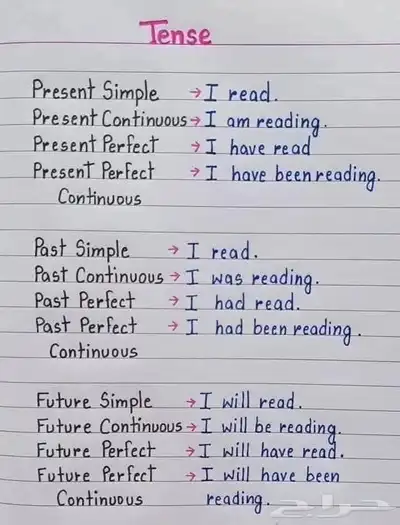 Tense
Present Simple → I read.
Present Continuous → I am reading.
Present Perfect → I have read
Present Perfect → I have been reading.
Continuous
Past Simple → I read.
Past Continuous → I was reading.
Past Perfect → I had read.
Past Perfect → I had been reading.
Continuous
Future Simple → I will read.
Future Continuous → I will be reading.
Future Perfect → I will have read.
Future Perfect → I will have been
Continuous reading.
حراج